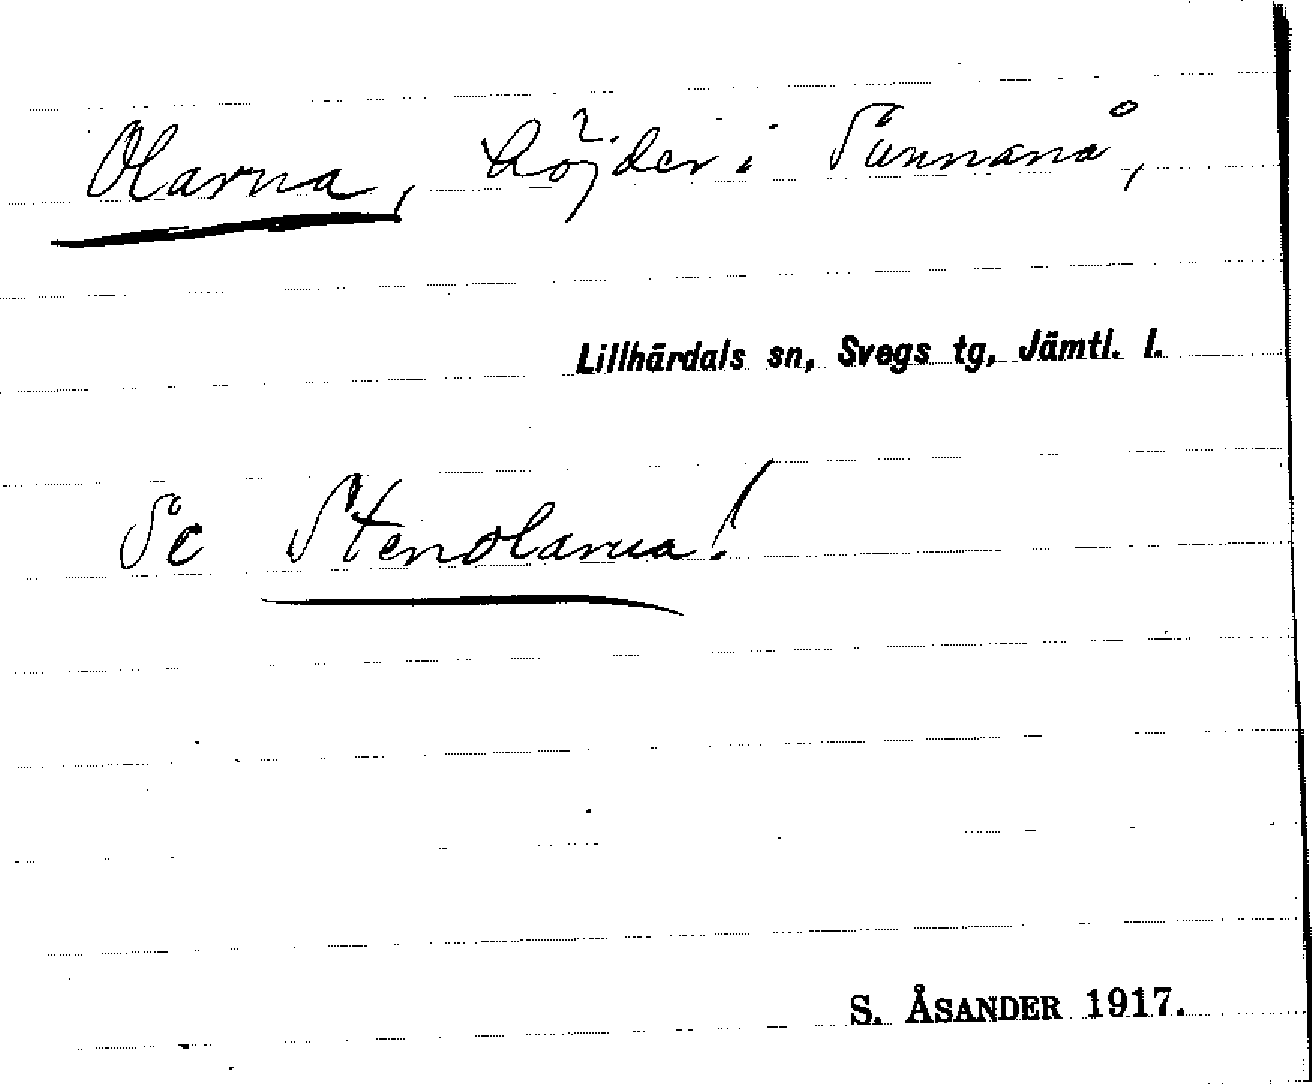 Olarna, höjder i Sunnanå,
Lillhärdals sn, Svegs tg, Jämtl. l.
Se Stenolarna!
S. ÅSANDER 1917.